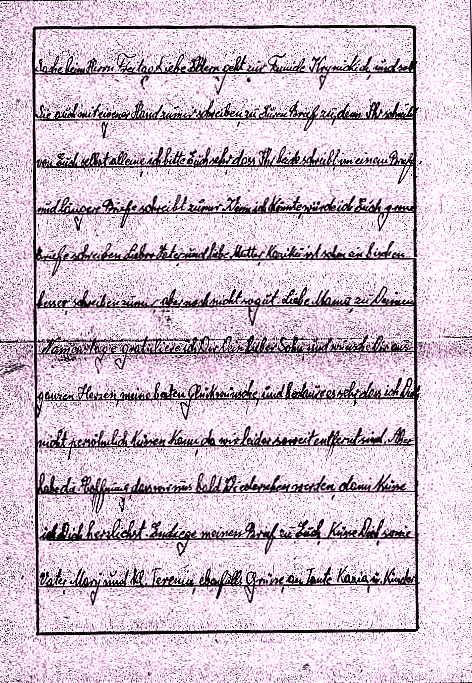 habe beim Herrn Freitag Liebe Eltern geht zur Familie Krynickich, und soll
Sie auch mit eigener Hand zu mir schreiben, zu Eurn Brief zu, denn Ihr schreibt
von Euch selbst alleine, ich bitte Euch sehr dass Ihr beide schreibt in einem Briefe,
und länger Briefe schreibt zu mir Wenn ich könnte würde ich Euch gerne
Briefe schreiben Lieber Vater und liebe Mutter Kaziku ist schon ein bischen
besser schreiben zu mir, aber noch nicht so gut. Liebe Mama zu Deinem
Namenstage gratuliere ich Dir Dein lieber Sohn und wünsche Dir aus
ganzen Herzen, meine besten Glükwünsche, und bedaure es sehr das ich Dich
nicht persöhnlich küssen kann, da wir leider soweit entfernt sind. Aber
habe die Hoffnung, dass wir uns bald Wiedersehen werden, dann Küsse
ich Dich herzlichst. Endiege meinen Brief zu Euch, Küsse Dich, sowie
Vater, Marj und kl. Terenia, ebenfalls Grüsse an Tante Kazia, u. Kinder